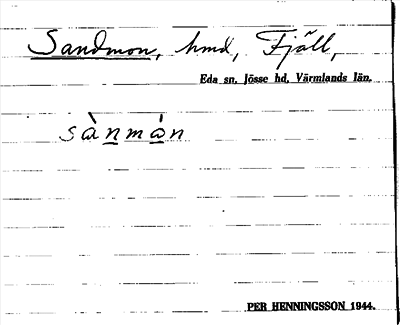 Sandmon, hmd, Fjäll,
Eda sn. Jösse hd. Värmlands län.
sànmán
PER HENNINGSSON 1944.